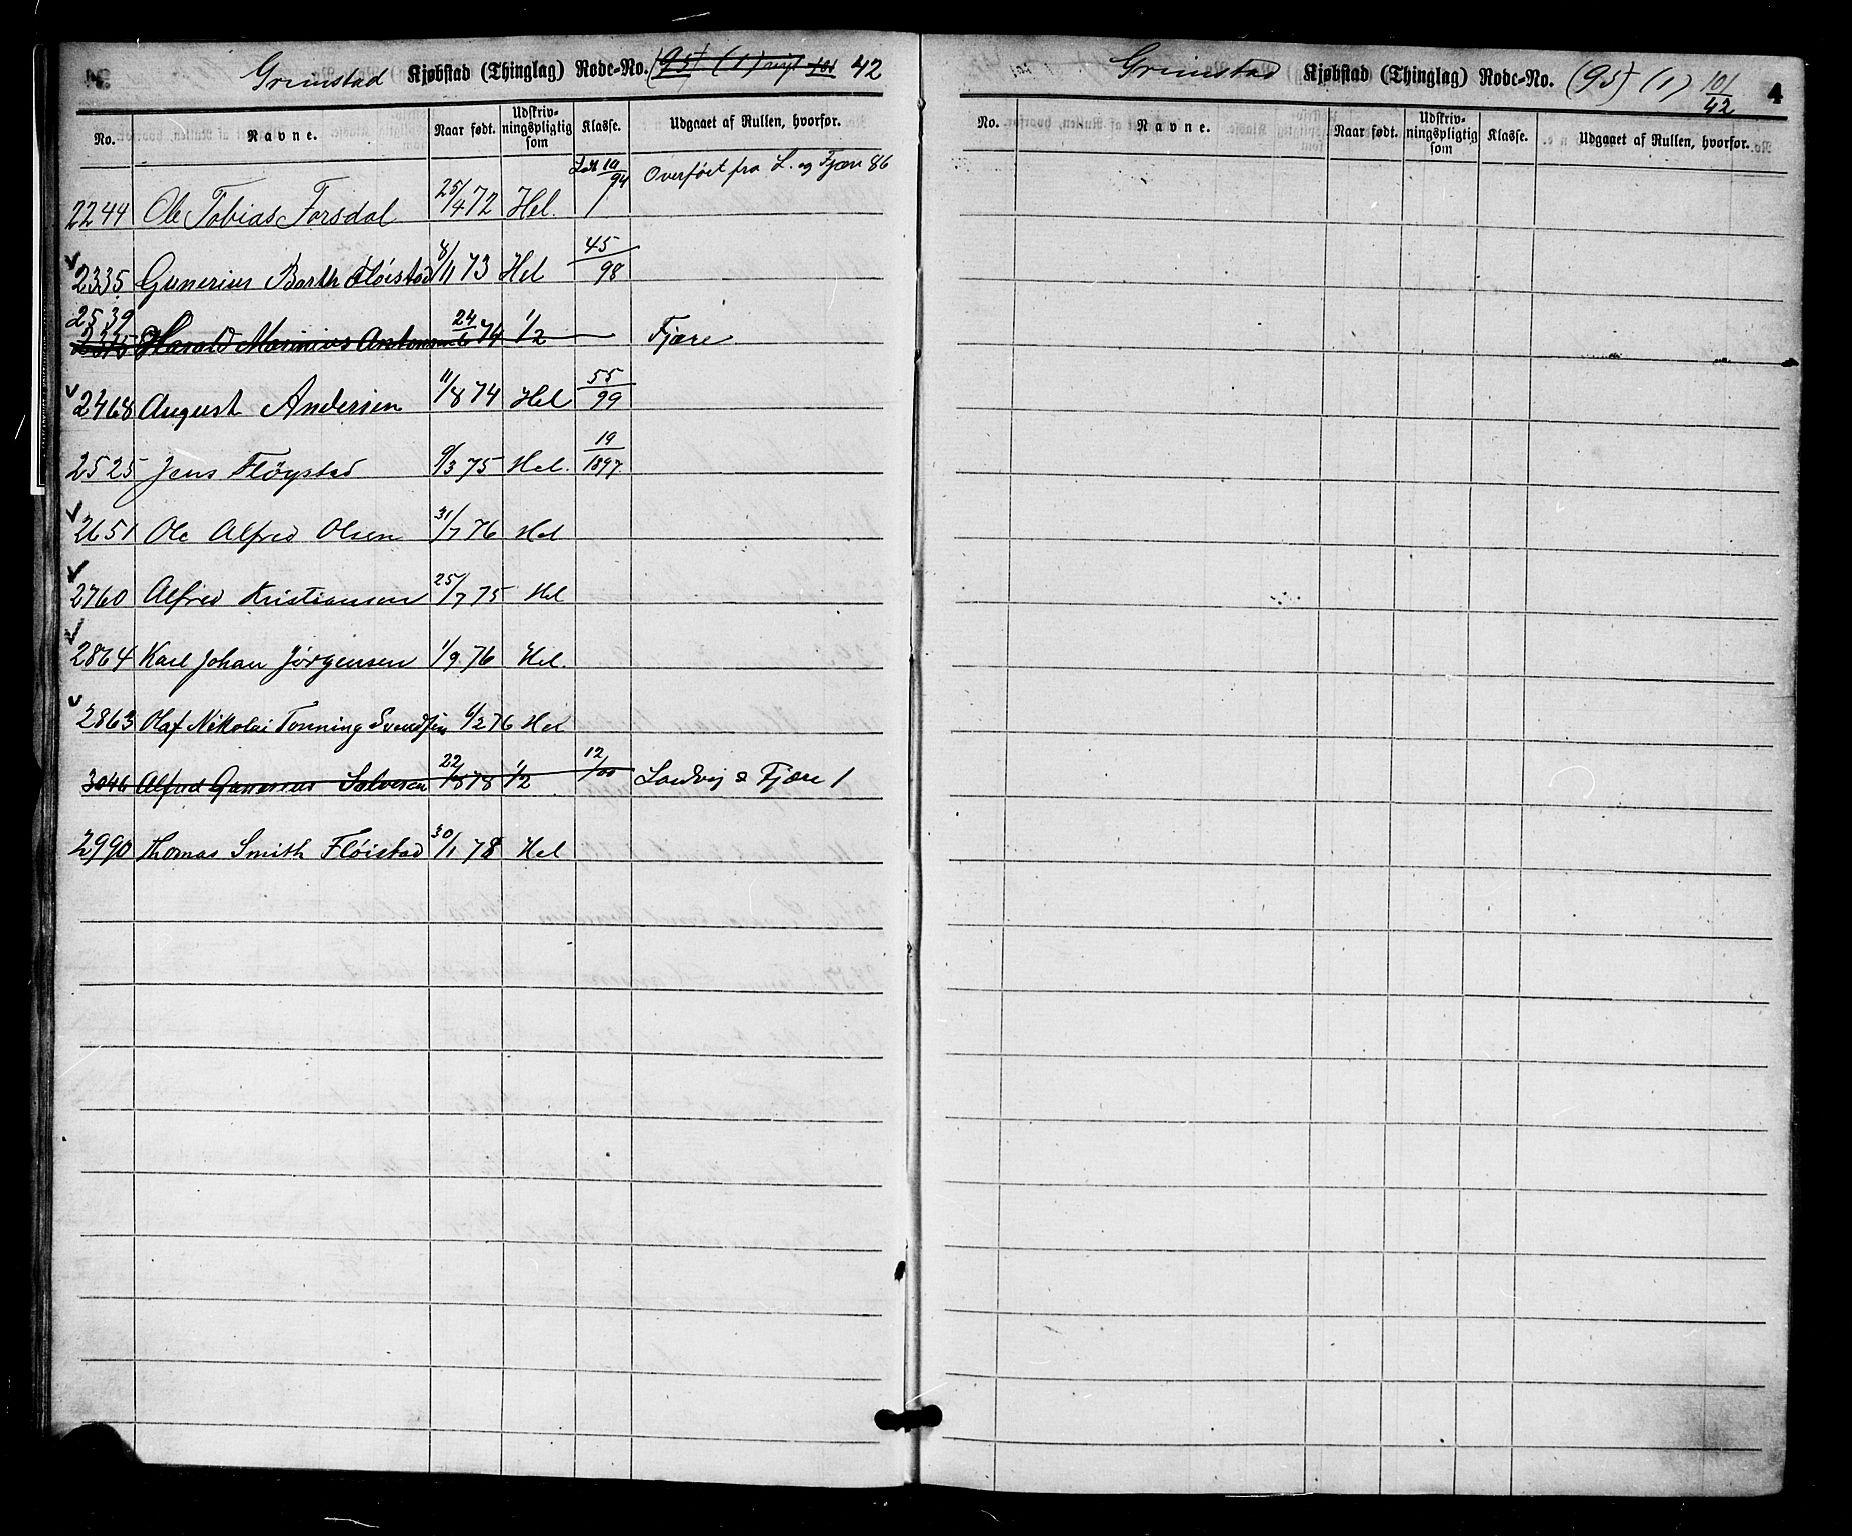 Grimstad Kjøbstad (Thinglag) Rode-No. (95) (1) nyt 101 42
No. Navne. Naar født. Udskriv-ningspligtig som Klasse. Udgaaet af Rullen, hvorfor.
2244 Ole Tobias Forsdal 25/4 72 Hel. 10/94 Overført fra L. og Fjære 86
2335 Gunerius Barth Fløistad 8/11 73 Hel 45/98
2539
Harald Marinius Antonsen 24/6 74 1/2 — Fjære
2468 August Andersen 11/8 74 Hel 55/99
2525 Jens Fløystad 9/3 75 Hel. 19/1897
2651 Ole Alfred Olsen 31/7 76 Hel
2760 Alfred Kristiansen 25/7 75 Hel
2864 Karl Johan Jørgensen 1/9 76 Hel.
2863 Olaf Nikolai Tonning Svendsen 6/2 76 Hel
3046 Alfred Gunerius Salvesen 22/8 78 1/2 12/00 Landvig & Fjære 1
2990 Thomas Smith Fløistad 30/1 78 Hel
Grimstad Kjøbstad (Thinglag) Rode-No. (95) (1) 101/42 4
No. Navne. Naar født. Udskriv-ningspligtig som Klasse. Udgaaet af Rullen, hvorfor.